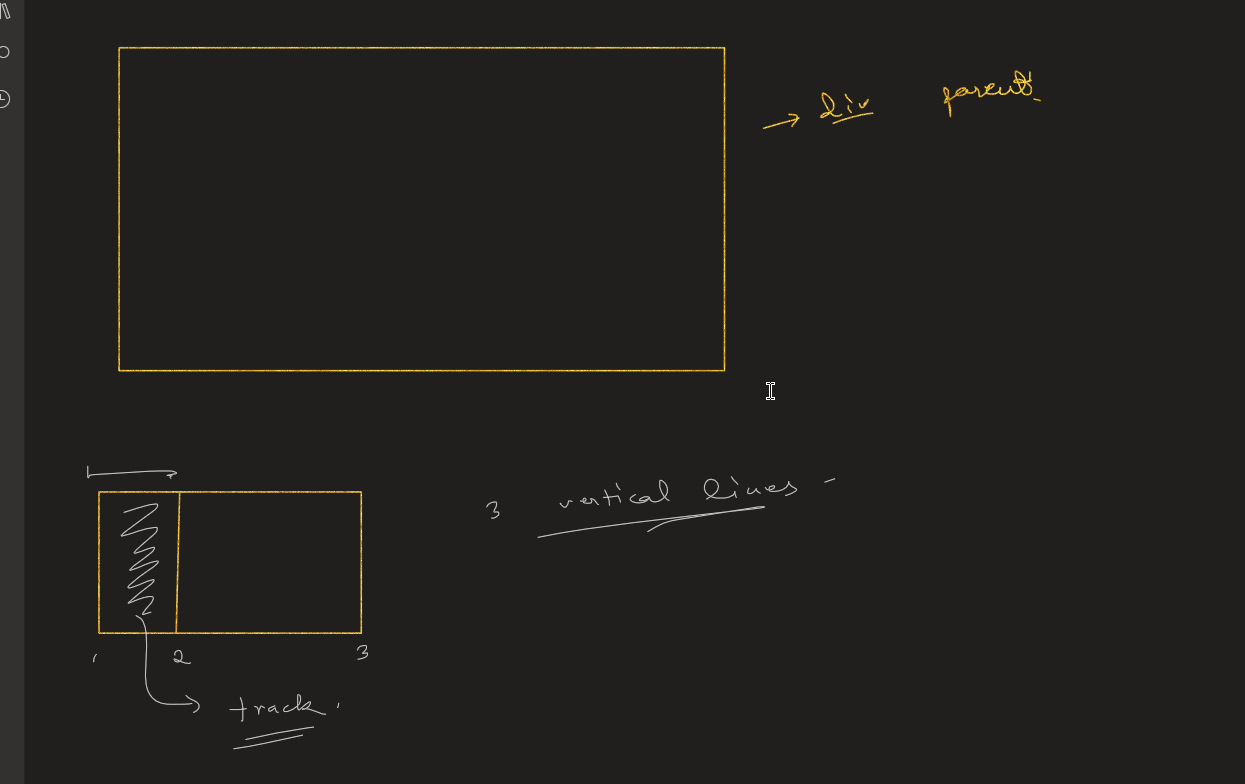 → div parent
3 vertical lines -
1 2 3
track.